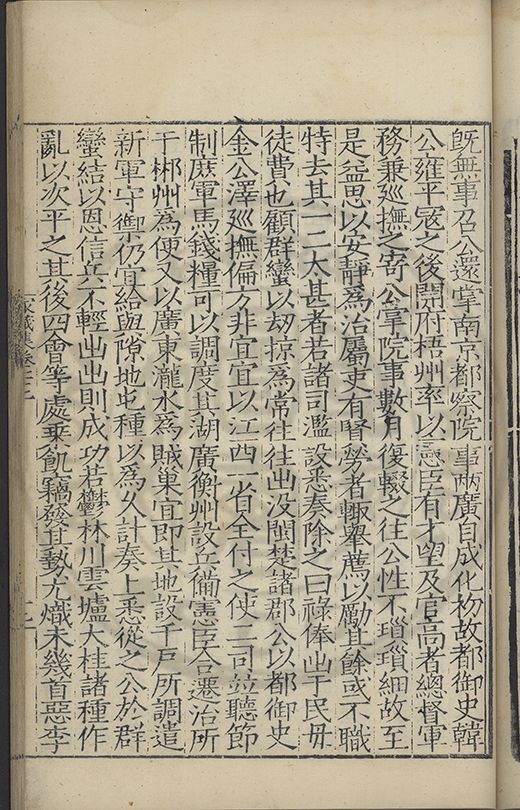 既無事召公還掌南京都察院事兩廣自成化初故都御史韓
公雍平寇之後開府梧州率以憲臣有才望及官高者總督軍
務兼巡撫之寄公掌院事數月復輟之往公性不瑣瑣細故至
是益思以安靜為治屬吏有賢勞者輒舉薦以勵其餘或不職
特去其一二太甚者若諸司濫設悉奏除之曰祿俸出于民毋
徒費也顧群蠻以刼掠為常往往出没閩楚諸郡公以都御史
金公澤巡撫偏方非宜宜以江西一省全付之使三司並聽節
制庶軍馬錢糧可以調度其湖廣衡州設兵備憲臣合遷治所
于郴州為便又以廣東瀧水為賊巢宜即其地設千戶所調遣
新軍守禦仍宜給與隙地屯種以為久計奏上悉從之公於群
蠻結以恩信兵不輕出出則成功若鬱林川雲壚大桂諸種作
亂以次平之其後四會等處乗飢竊發其勢尤熾未幾首惡李
家藏集卷